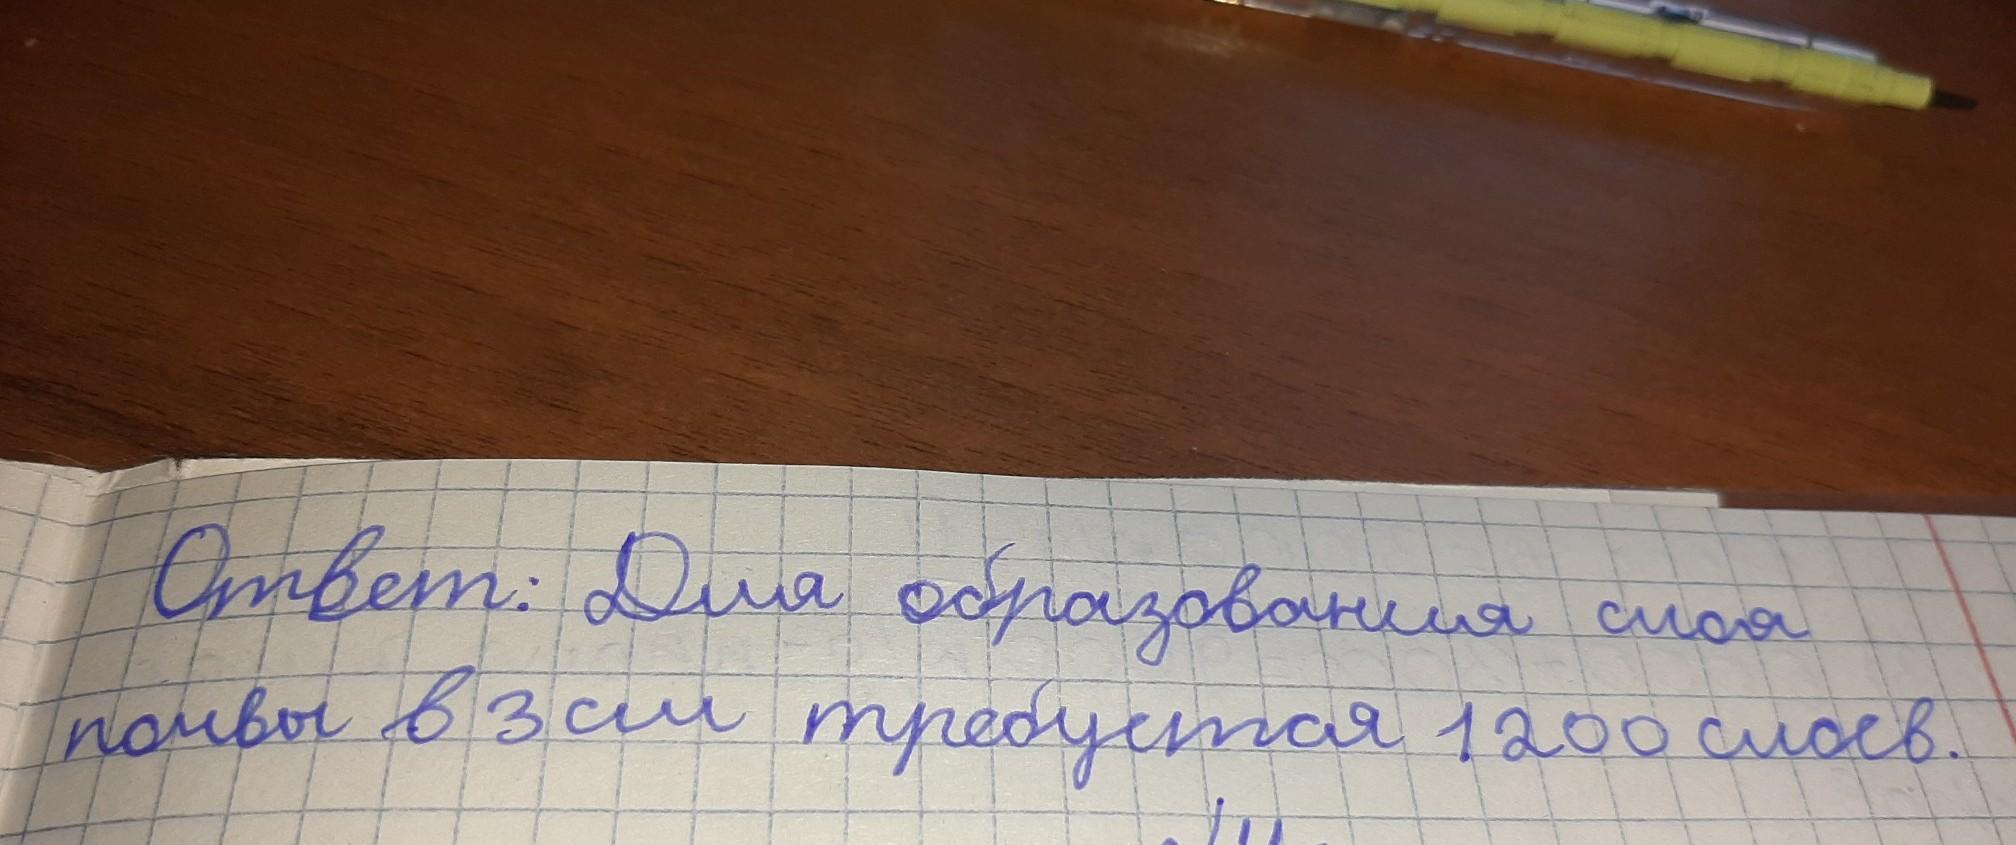 Ответ: Для образования слоя
почвы в 3 см требуется 1200 слоев.